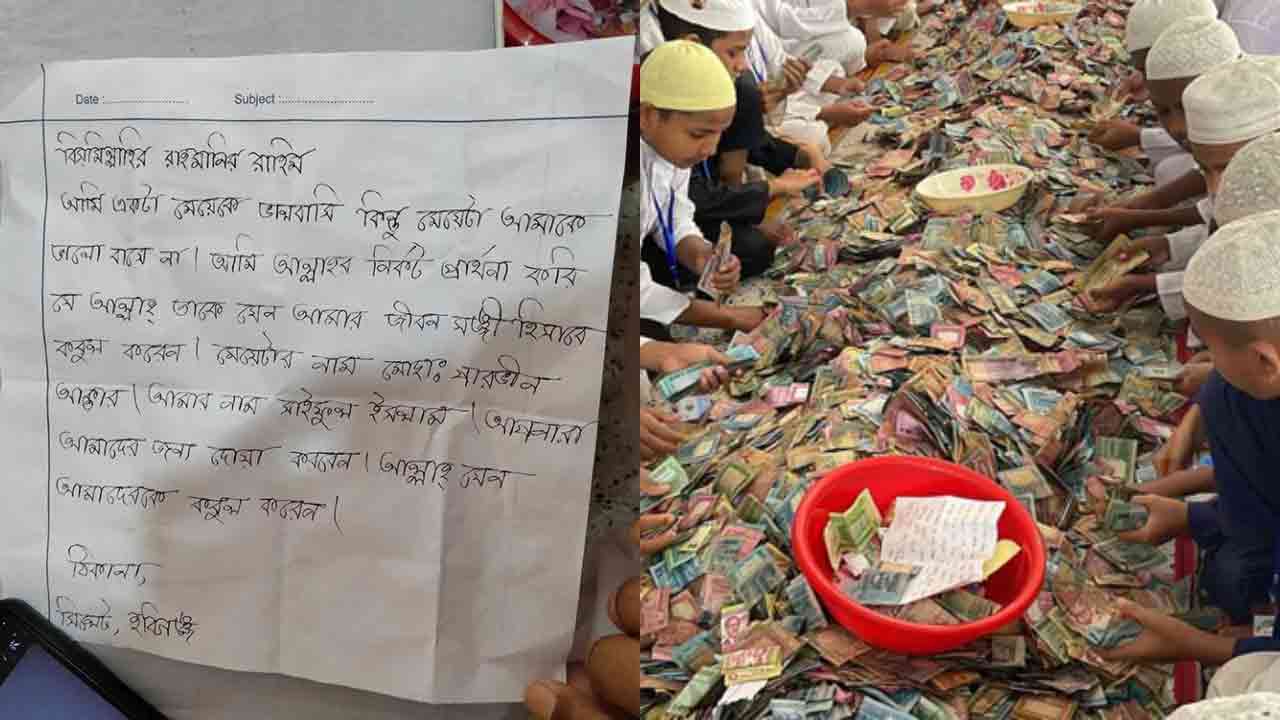 Date :........................ Subject :...........................
বিসমিল্লাহির রাহমানির রাহিম
আমি একটা মেয়েকে ভালবাসি কিন্তু মেয়েটা আমাকে
ভালো বাসে না। আমি আল্লাহর নিকট প্রার্থনা করি
যে আল্লাহ্ তাকে যেন আমার জীবন সঙ্গী হিসাবে
কবুল করেন। মেয়েটার নাম মোহাঃ শারভীন
আক্তার। আমার নাম সাইফুল ইসলাম। আপনারা
আমাদের জন্য দোয়া করবেন। আল্লাহ্ যেন
আমাদেরকে কবুল করেন।
ঠিকানা,
সিলেট, হবিগঞ্জ